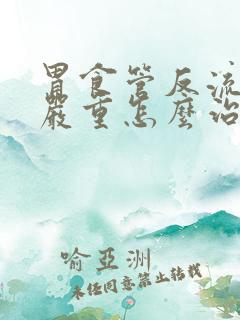 胃食管反流
嚴重怎麼治
喻亞洲
未经同意禁止转载